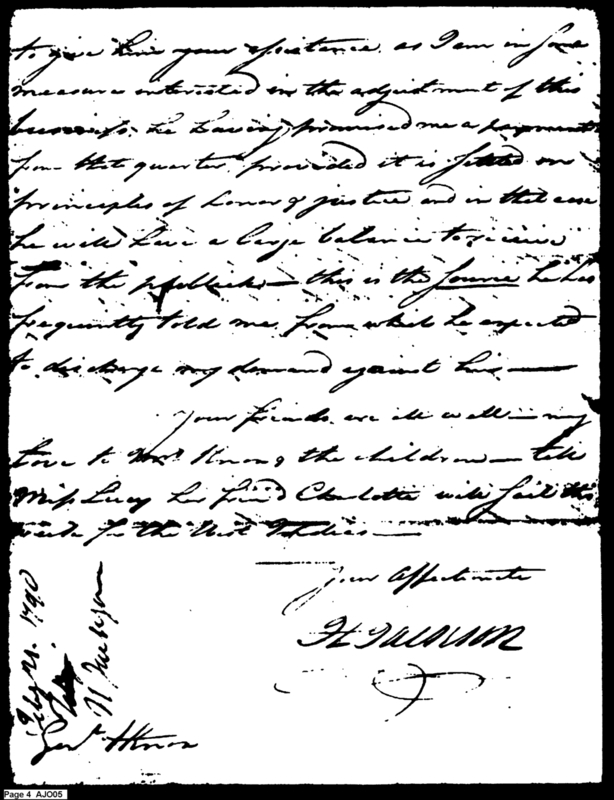 to give him your assistance, as I am in some
measure interested in the adjustment of this
business, he having promised me a payment
from that quarter provided it is settled on
principles of honor & justice and in that case
he will have a large balance to receive
from the publick — this is the source he has
frequently told me from which he expected
to discharge my demand against him —
Your friends are all well — my
love to Mrs Knox & the children — tell
Miss Lucy her friend Charlotte will sail this
week for the West Indies —
Your Affectionate
H Jackson
Feby 21. 1790
H Jackson
Genl. H Knox
Page 4 AJO05